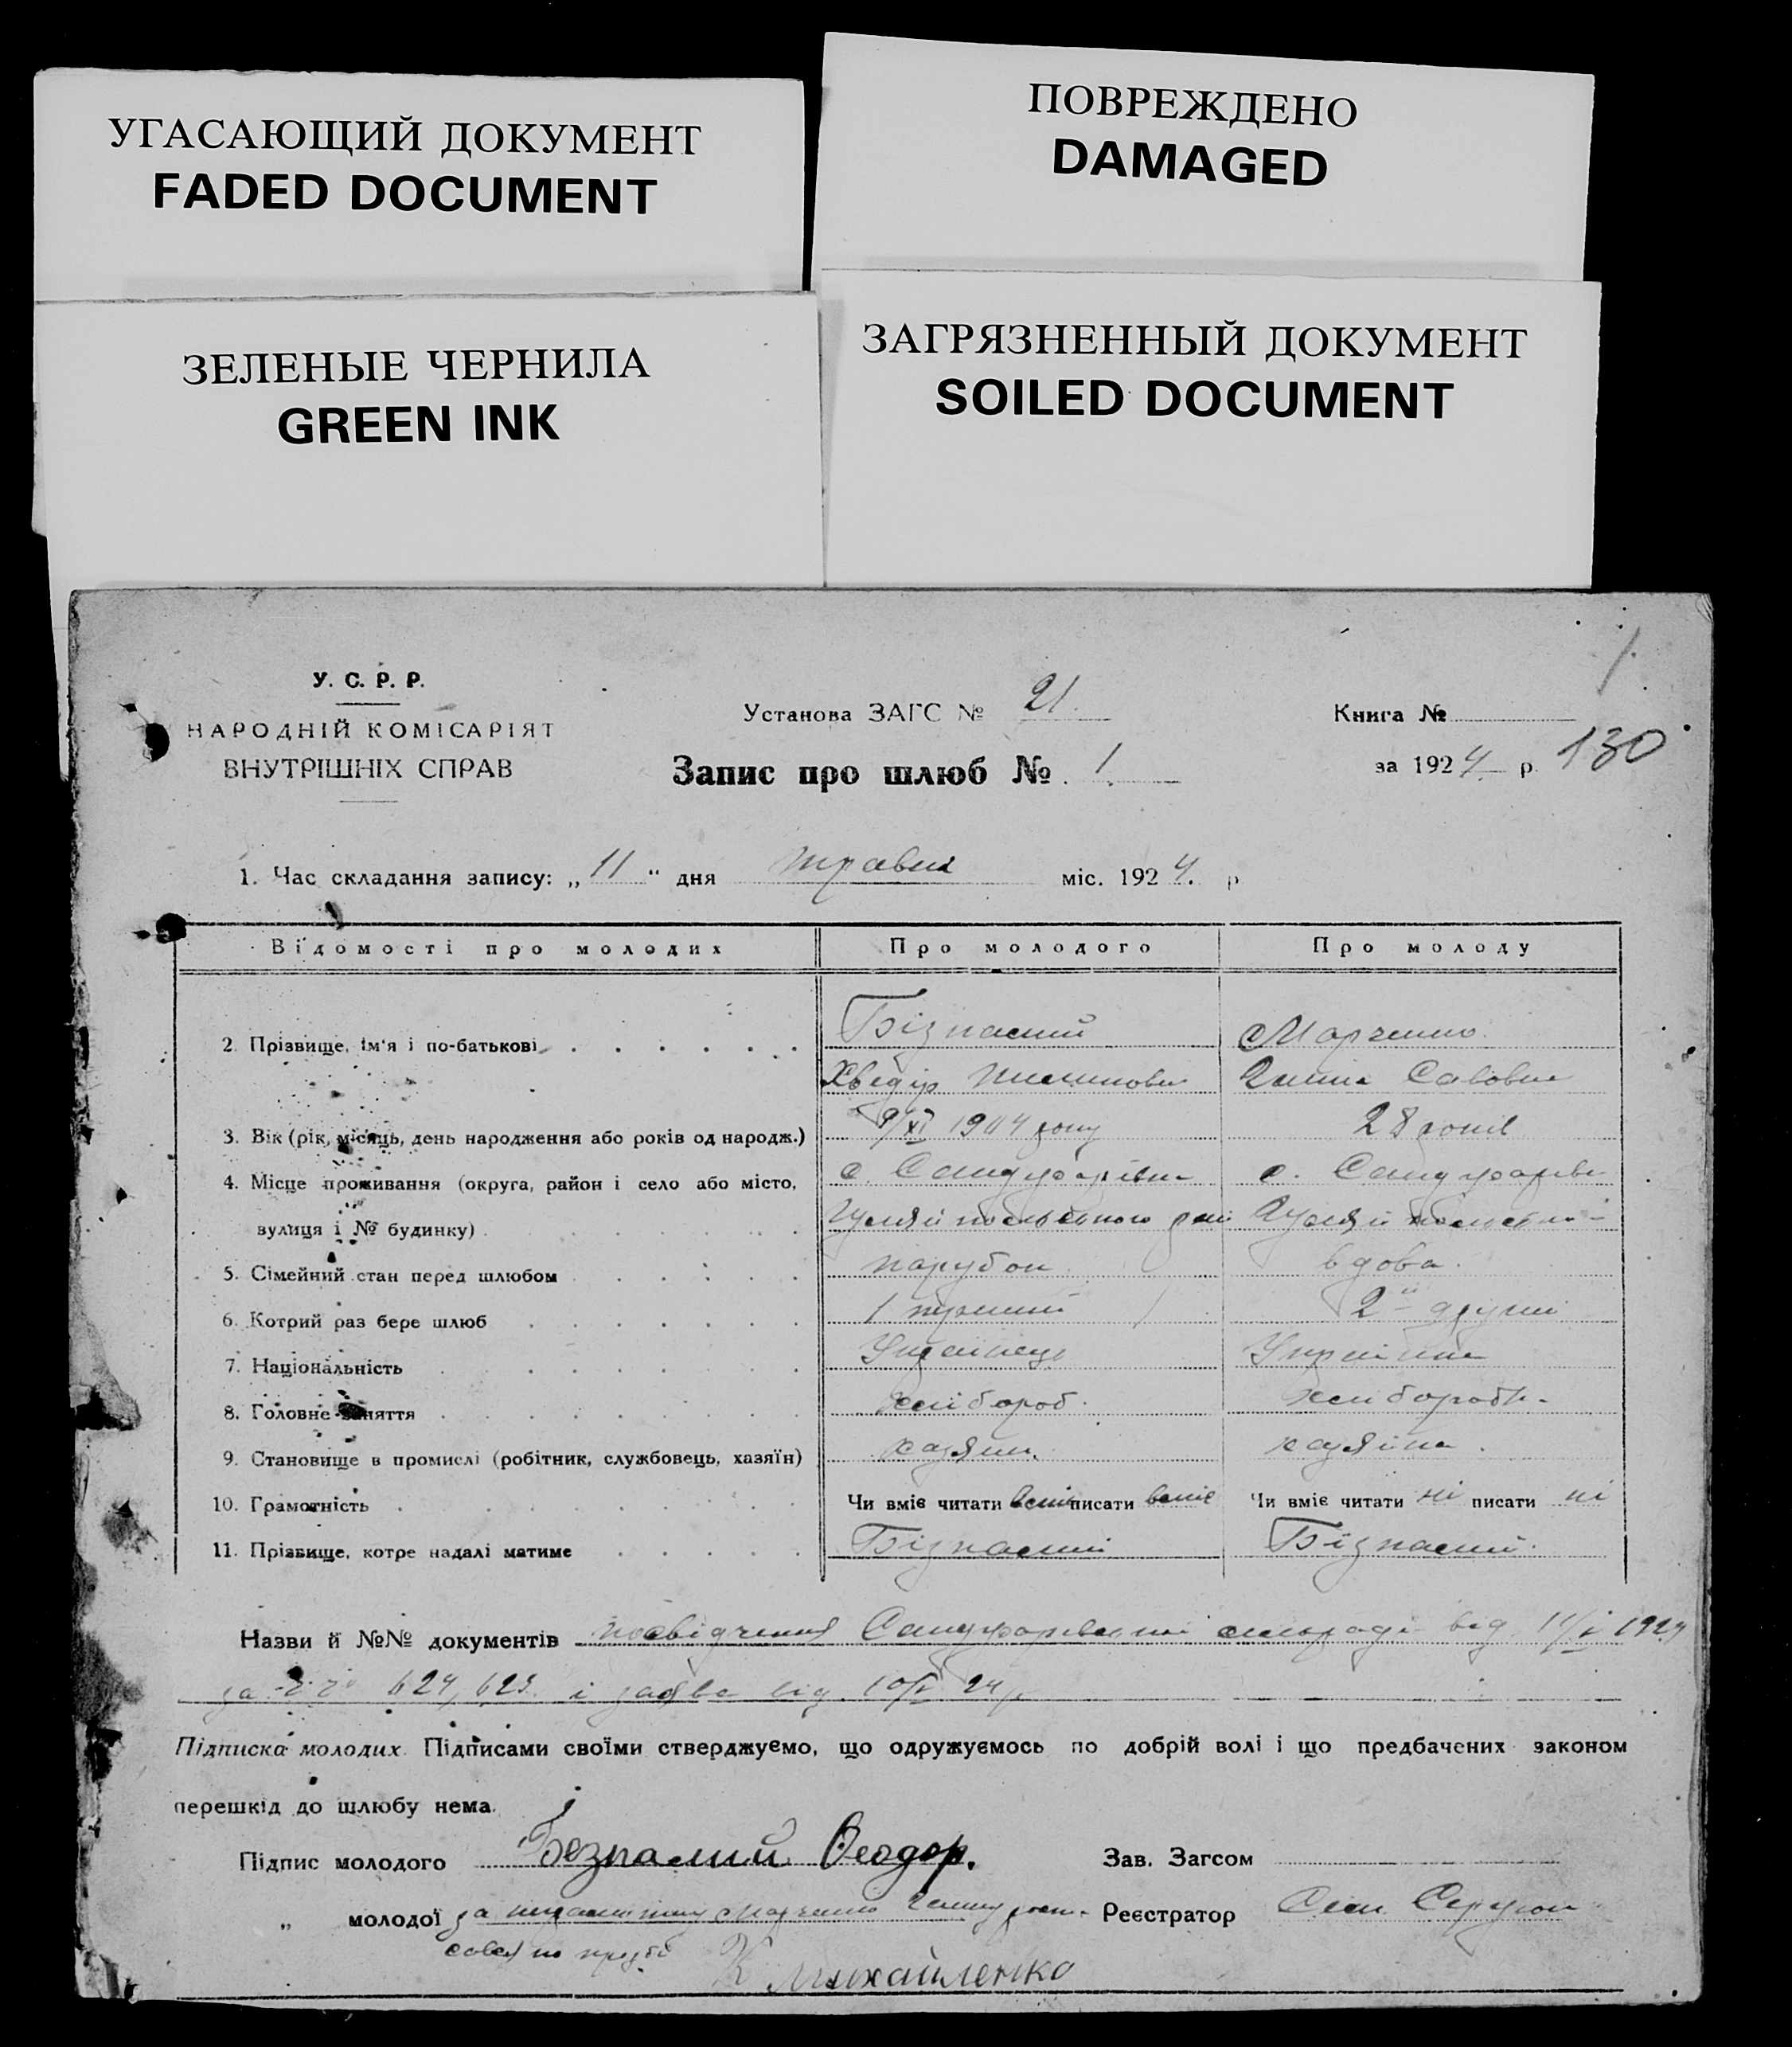 УГАСАЮЩИЙ ДОКУМЕНТ
FADED DOCUMENT
ПОВРЕЖДЕНО
DAMAGED
ЗЕЛЕНЫЕ ЧЕРНИЛА
GREEN INK
ЗАГРЯЗНЕННЫЙ ДОКУМЕНТ
SOILED DOCUMENT
У. С. Р. Р.
НАРОДНІЙ КОМІСАРІЯТ
ВНУТРІШНІХ СПРАВ
Установа ЗАГС № 21.
Запис про шлюб № 1.
Книга №
за 1924 р. 130
1. Час складання запису: „11" дня травня міс. 1924. р
Відомості про молодих Про молодого Про молоду
2. Прізвище, ім'я і по-батькові Бізпалий Марченко
Хведір Галина Савовна
3. Вік (рік, місяць, день народження або років од народж.) 9/XI 1904 року 28 років
4. Місце проживання (округа, район і село або місто, с. с.
вулиця і № будинку)
5. Сімейний стан перед шлюбом парубок вдова.
6. Котрий раз бере шлюб 1 перший 2й другий
7. Національність Українець Українка
8. Головне заняття хлібороб. хлібороб
9. Становище в промислі (робітник, службовець, хазяїн) хазяїн. хазяйка.
10. Грамотність Чи вміє читати вміє писати вміє Чи вміє читати ні писати ні
11. Прізвище, котре надалі матиме Бізпалий Бізпалий.
Назви й №№ документів посвідчення сільради від 11/V 1924
за 624, 623. і заява від 10/V 24 р
Підписка молодих. Підписами своїми стверджуємо, що одружуємось по добрій волі і що предбачених законом
перешкід до шлюбу нема.
Підпис молодого Безпалий Феодор. Зав. Загсом
„ молодої за неграмотну Марченко Галину Реєстратор
К Михайленко